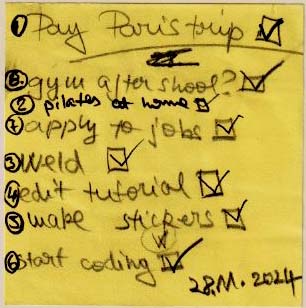 ① Pay Paris trip
⑧ gym after shool?
② pilates at home
⑦ apply to jobs
③ weld
④ edit tutorial
⑤ make stickers
⑥ start coding
28.11.2024